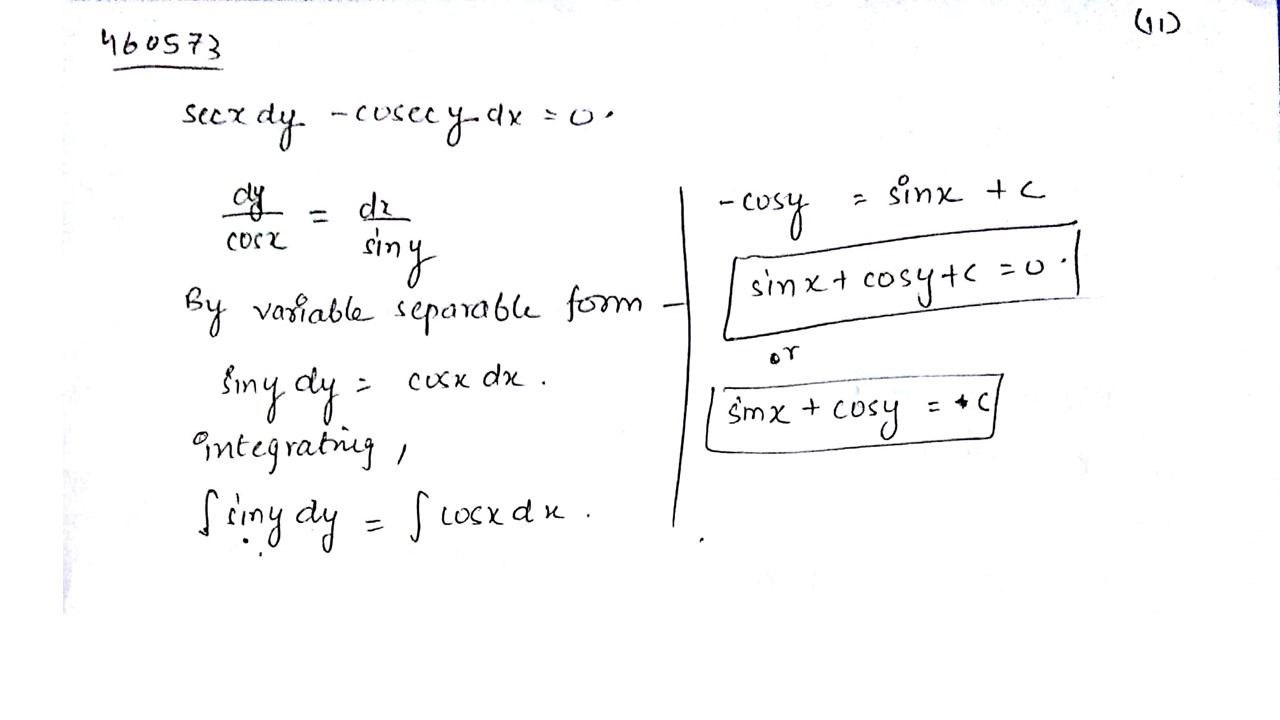 (11)
460573
secx dy - cosec y dx = 0.
dy/cosx = dx/siny
By variable separable form -
siny dy = cosx dx.
integrating,
∫ siny dy = ∫ cosx dx.
- cosy = sinx + c
sinx + cosy + c = 0.
or
sinx + cosy = + c